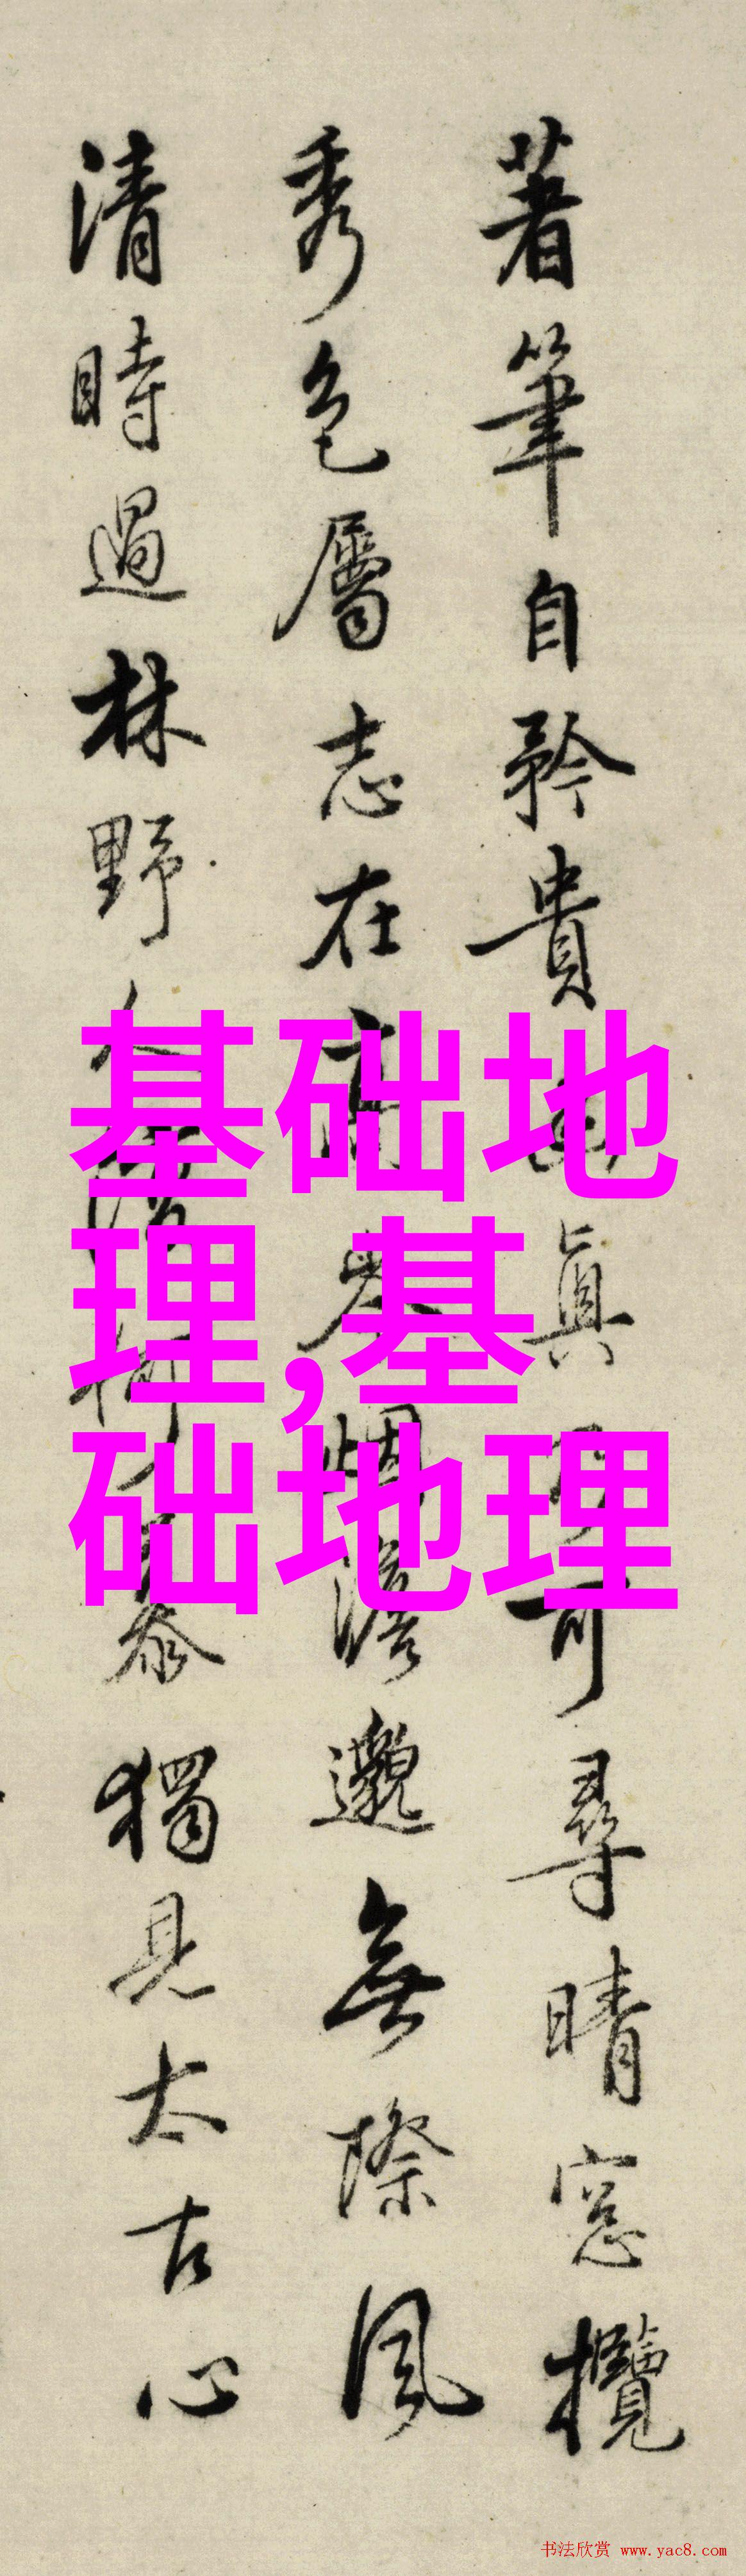 著筆自矜貴眞可尋晴窓攬
秀色屬志在高岑烟澹邈無際風
清時過林野人獨見太古心
基础地
理,基
础地理
书法欣赏 www.yac8.com